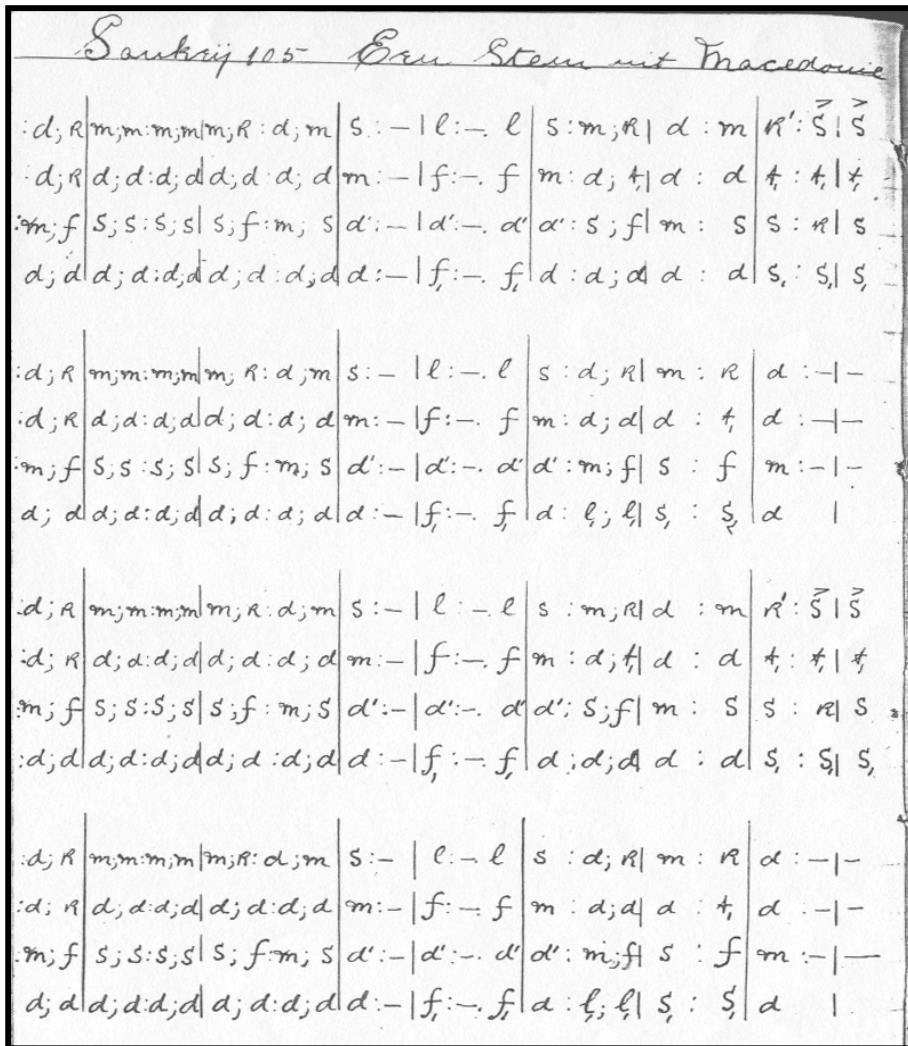 Sankey 105 Een Stem uit Macedonie
:d; R|m;m:m;m|m;R:d;m|S:-|l:-. l|S:m;R|d:m|R':S̄|S̄
:d;R|d;d:d;d|d;d:d;d|m:-|f:-. f|m:d;t,|d:d|t,:t,|t,
:m;f|S;S:S;S|S;f:m;S|d':-|d':-. d'|d':S;f|m:S|S:R|S
d;d|d;d:d;d|d;d:d;d|d:-|f,:-. f,|d:d;d|d:d|S,:S,|S,
:d;R|m;m:m;m|m;R:d;m|S:-|l:-. l|S:d;R|m:R|d:-|-
:d;R|d;d:d;d|d;d:d;d|m:-|f:-. f|m:d;d|d:t,|d:-|-
:m;f|S;S:S;S|S;f:m;S|d':-|d':-. d'|d':m;f|S:f|m:-|-
d;d|d;d:d;d|d;d:d;d|d:-|f,:-. f,|d:l,;l,|S,:S,|d |
:d;R|m;m:m;m|m;R:d;m|S:-|l:-. l|S:m;R|d:m|R':S̄|S̄
:d;R|d;d:d;d|d;d:d;d|m:-|f:-. f|m:d;t,|d:d|t,:t,|t,
:m;f|S;S:S;S|S;f:m;S|d':-|d':-. d'|d':S;f|m:S|S:R|S
:d;d|d;d:d;d|d;d:d;d|d:-|f,:-. f,|d:d;d|d:d|S,:S,|S,
:d;R|m;m:m;m|m;R:d;m|S:-|l:- l|S:d;R|m:R|d:-|-
:d;R|d;d:d;d|d;d:d;d|m:-|f:-. f|m:d;d|d:t,|d:-|-
:m;f|S;S:S;S|S;f:m;S|d':-|d':-. d'|d':m;f|S:f|m:-|-
d;d|d;d:d;d|d;d:d;d|d:-|f,:-. f,|d:l,;l,|S,:S,|d |